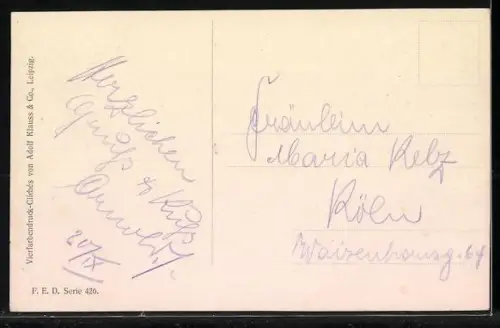 Vierfarbendruck-Clichés von Adolf Klauss & Co., Leipzig.
Herzlichen
Gruß & Kuß
20/IX
F. E. D. Serie 426.
Fräulein
Maria Kelz
Köln
Waizenhausg. 64